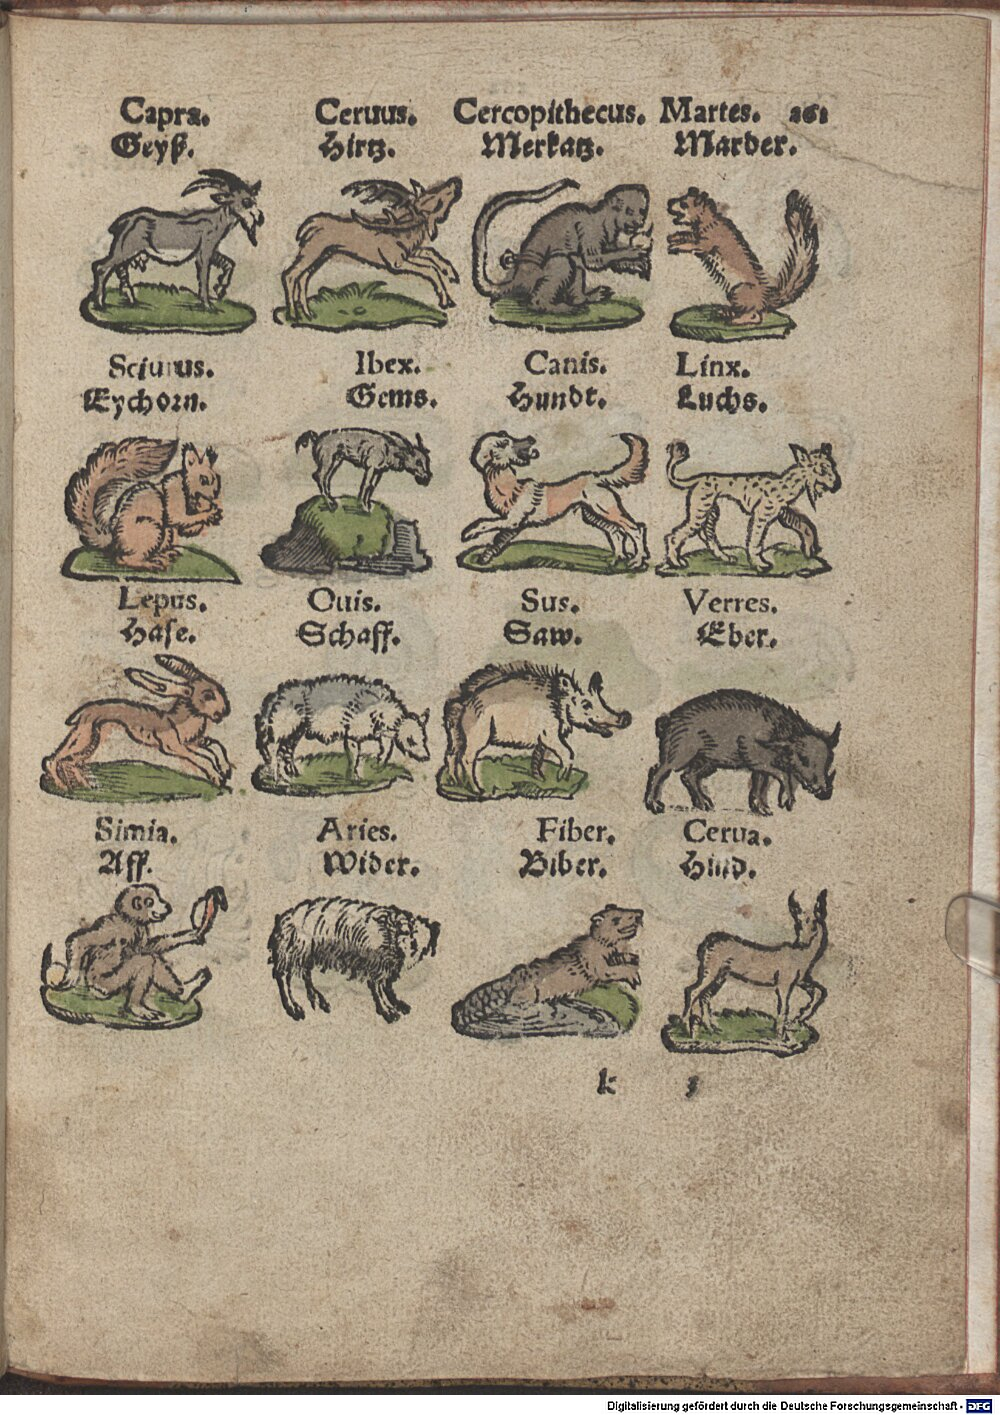 Capra. Ceruus. Cercopithecus. Martes. 261
Geyß. Hirtz. Merkatz. Marder.
Sciurus. Ibex. Canis. Linx.
Eychorn. Gems. Hundt. Luchs.
Lepus. Ouis. Sus. Verres.
Hase. Schaff. Saw. Eber.
Simia. Aries. Fiber. Cerua.
Aff. Wider. Biber. Hind.
k 3
Digitalisierung gefördert durch die Deutsche Forschungsgemeinschaft - DFG